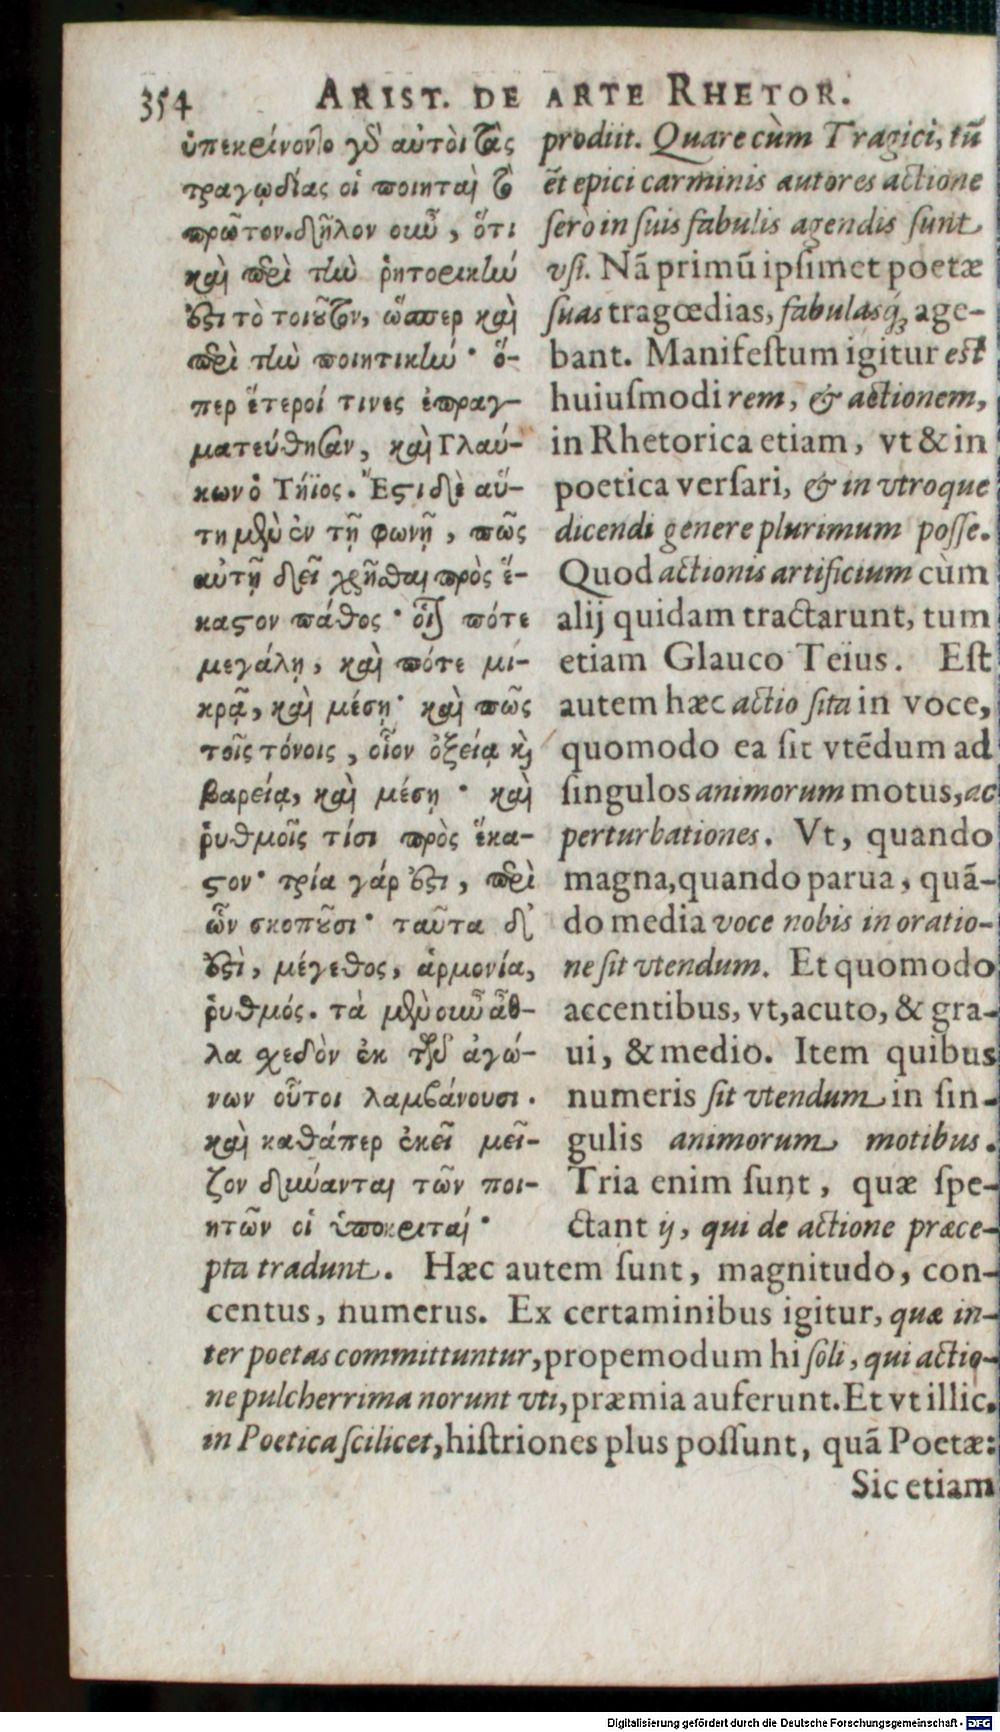 354 ARIST. DE ARTE RHETOR.
ὑπεκρίνοντο γὸ αὐτοὶ τὰς
τραγῳδίας οἱ ποιηταὶ τὸ
πρῶτον. δῆλον οὖν, ὅτι
καὶ περὶ τὴν ῥητορικήν
ἐστι τὸ τοιοῦτον, ὥσπερ καὶ
περὶ τὴν ποιητικήν· ὅ-
περ ἕτεροί τινες ἐπραγ-
ματεύθησαν, καὶ Γλαύ-
κων ὁ Τήϊος. Ἔστι δὲ αὕ-
τη μὲν ἐν τῇ φωνῇ, πῶς
αὐτῇ δεῖ χρῆσθαι πρὸς ἕ-
καστον πάθος· οἷον πότε
μεγάλῃ, καὶ πότε μι-
κρᾷ, καὶ μέσῃ· καὶ πῶς
τοῖς τόνοις, οἷον ὀξείᾳ καὶ
βαρείᾳ, καὶ μέσῃ· καὶ
ῥυθμοῖς τίσι πρὸς ἕκα-
στον· τρία γάρ ἐστι, περὶ
ὧν σκοποῦσι· ταῦτα δ'
ἐστὶ, μέγεθος, ἁρμονία,
ῥυθμός. τὰ μὲν οὖν ἆθ-
λα σχεδὸν ἐκ τῶν ἀγώ-
νων οὗτοι λαμβάνουσι.
καὶ καθάπερ ἐκεῖ μεῖ-
ζον δύνανται τῶν ποι-
ητῶν οἱ ὑποκριταί·
prodiit. Quare cùm Tragici, tū
ēt epici carminis autores actione
ſerò in ſuis fabulis agendis ſunt
vſi. Nā primū ipſimet poetæ
ſuas tragœdias, fabulasq́; age-
bant. Manifeſtum igitur eſt
huiuſmodi rem, & actionem,
in Rhetorica etiam, vt & in
poetica verſari, & in vtroque
dicendi genere plurimum poſſe.
Quod actionis artificium cùm
alij quidam tractarunt, tum
etiam Glauco Teïus. Eſt
autem hæc actio ſita in voce,
quomodo ea ſit vtēdum ad
ſingulos animorum motus, ac
perturbationes. Vt, quando
magna, quando parua, quā-
do media voce nobis in oratio-
ne ſit vtendum. Et quomodo
accentibus, vt, acuto, & gra-
ui, & medio. Item quibus
numeris ſit vtendum in ſin-
gulis animorum motibus.
Tria enim ſunt, quæ ſpe-
ctant ij, qui de actione præce-
pta tradunt. Hæc autem ſunt, magnitudo, con-
centus, numerus. Ex certaminibus igitur, quæ in-
ter poetas committuntur, propemodum hi ſoli, qui actio-
ne pulcherrima norunt vti, præmia auferunt. Et vt illic,
in Poetica ſcilicet, hiſtriones plus poſſunt, quā Poetæ:
Sic etiam
Digitalisierung gefördert durch die Deutsche Forschungsgemeinschaft - DFG